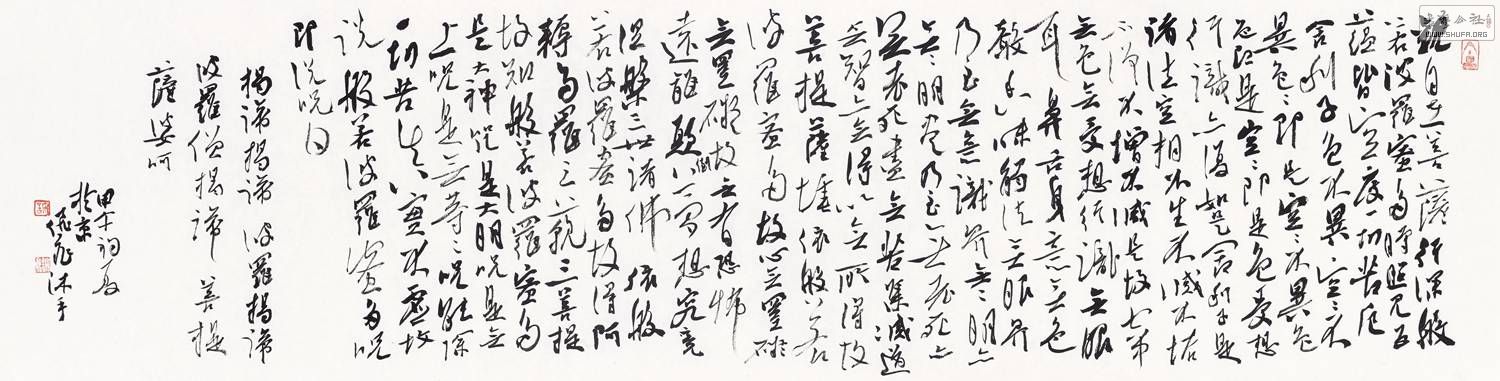 观自在菩萨行深般
若波羅蜜多時照見五
蕴皆空度一切苦厄
舍利子色不異空空不
異色色即是空空即是色受想
行識亦復如是舍利子是
諸法空相不生不滅不垢
不净不增不减是故空中
無色無受想行識無眼
耳鼻舌身意無色
聲香味觸法無眼界
乃至無意識界無無明亦
無無明盡乃至無老死亦
無老死盡無苦集滅道
無智亦無得以無所得故
菩提薩埵依般若
波羅蜜多故心無罣礙
無罣礙故無有恐怖
遠離顛倒夢想究竟
涅槃三世諸佛依般
若波羅蜜多故得阿
耨多羅三藐三菩提
故知般若波羅蜜多
是大神咒是大明咒是無
上咒是無等等咒能除
一切苦真實不虛故
說般若波羅蜜多咒
即說咒曰
揭諦揭諦波羅揭諦
波羅僧揭諦菩提
薩婆訶
甲午初夏
於京
沐手
WWW.SHUFA.ORG